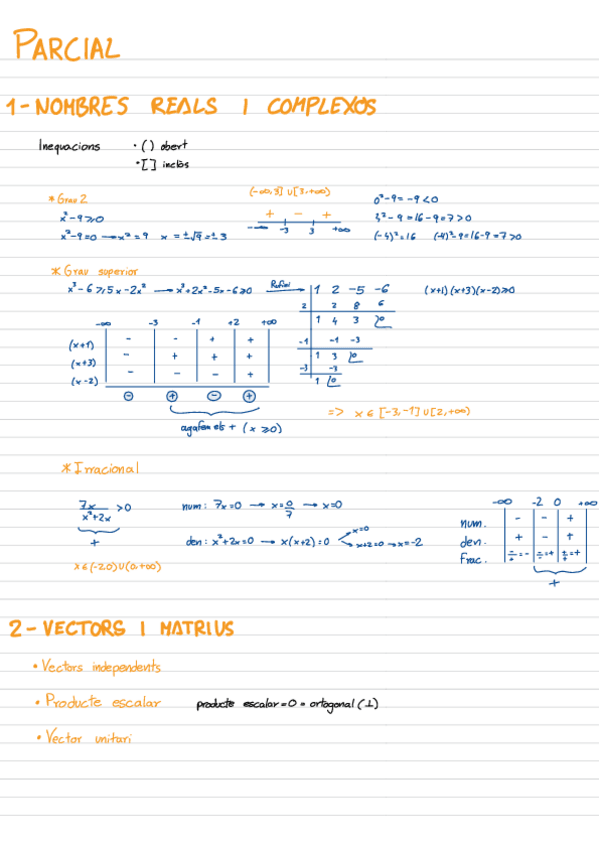 PARCIAL
1-NOMBRES REALS I COMPLEXOS
Inequacions · ( ) obert
· [ ] inclòs
* Grau 2 (-∞,3] ∪ [3,+∞) 0²-9=-9<0
x²-9≥0 + - + 4²-9=16-9=7>0
x²-9=0 → x²=9 x=±√9=±3 -∞ -3 3 +∞ (-4)²=16 (-4)²-9=16-9=7>0
* Grau superior
x³-6≥5x-2x² → x³+2x²-5x-6≥0 Rufini 1 2 -5 -6 (x+1)(x+3)(x-2)≥0
2 2 8 6
-∞ -3 -1 +2 +∞ 1 4 3 0
(x+1) - - + + -1 -1 -3
(x+3) - + + + 1 3 0
(x-2) - - - + -3 -3
1 0
- + - +
=> x∈[-3,-1]∪[2,+∞)
agafem els + (x≥0)
* Irracional
7x/x²+2x >0 num: 7x=0 → x=0/7 → x=0
+ den: x²+2x=0 → x(x+2)=0 x=0 x+2=0 → x=-2
x∈(-2,0)∪(0,+∞)
-∞ -2 0 +∞
num. - - +
den. + - +
Frac. -/+=- -/-=+ +/+=+
+
2-VECTORS I MATRIUS
· Vectors independents
· Producte escalar producte escalar=0 = ortogonal (⊥)
· Vector unitari